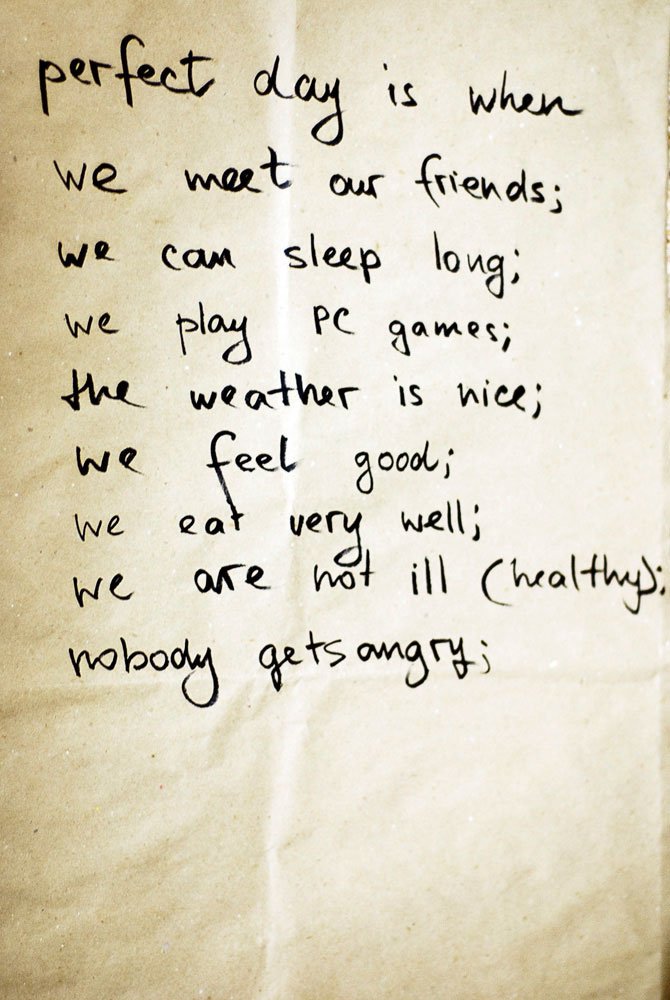 perfect day is when
we meet our friends;
we can sleep long;
we play PC games;
the weather is nice;
we feel good;
we eat very well;
we are not ill (healthy);
nobody gets angry;